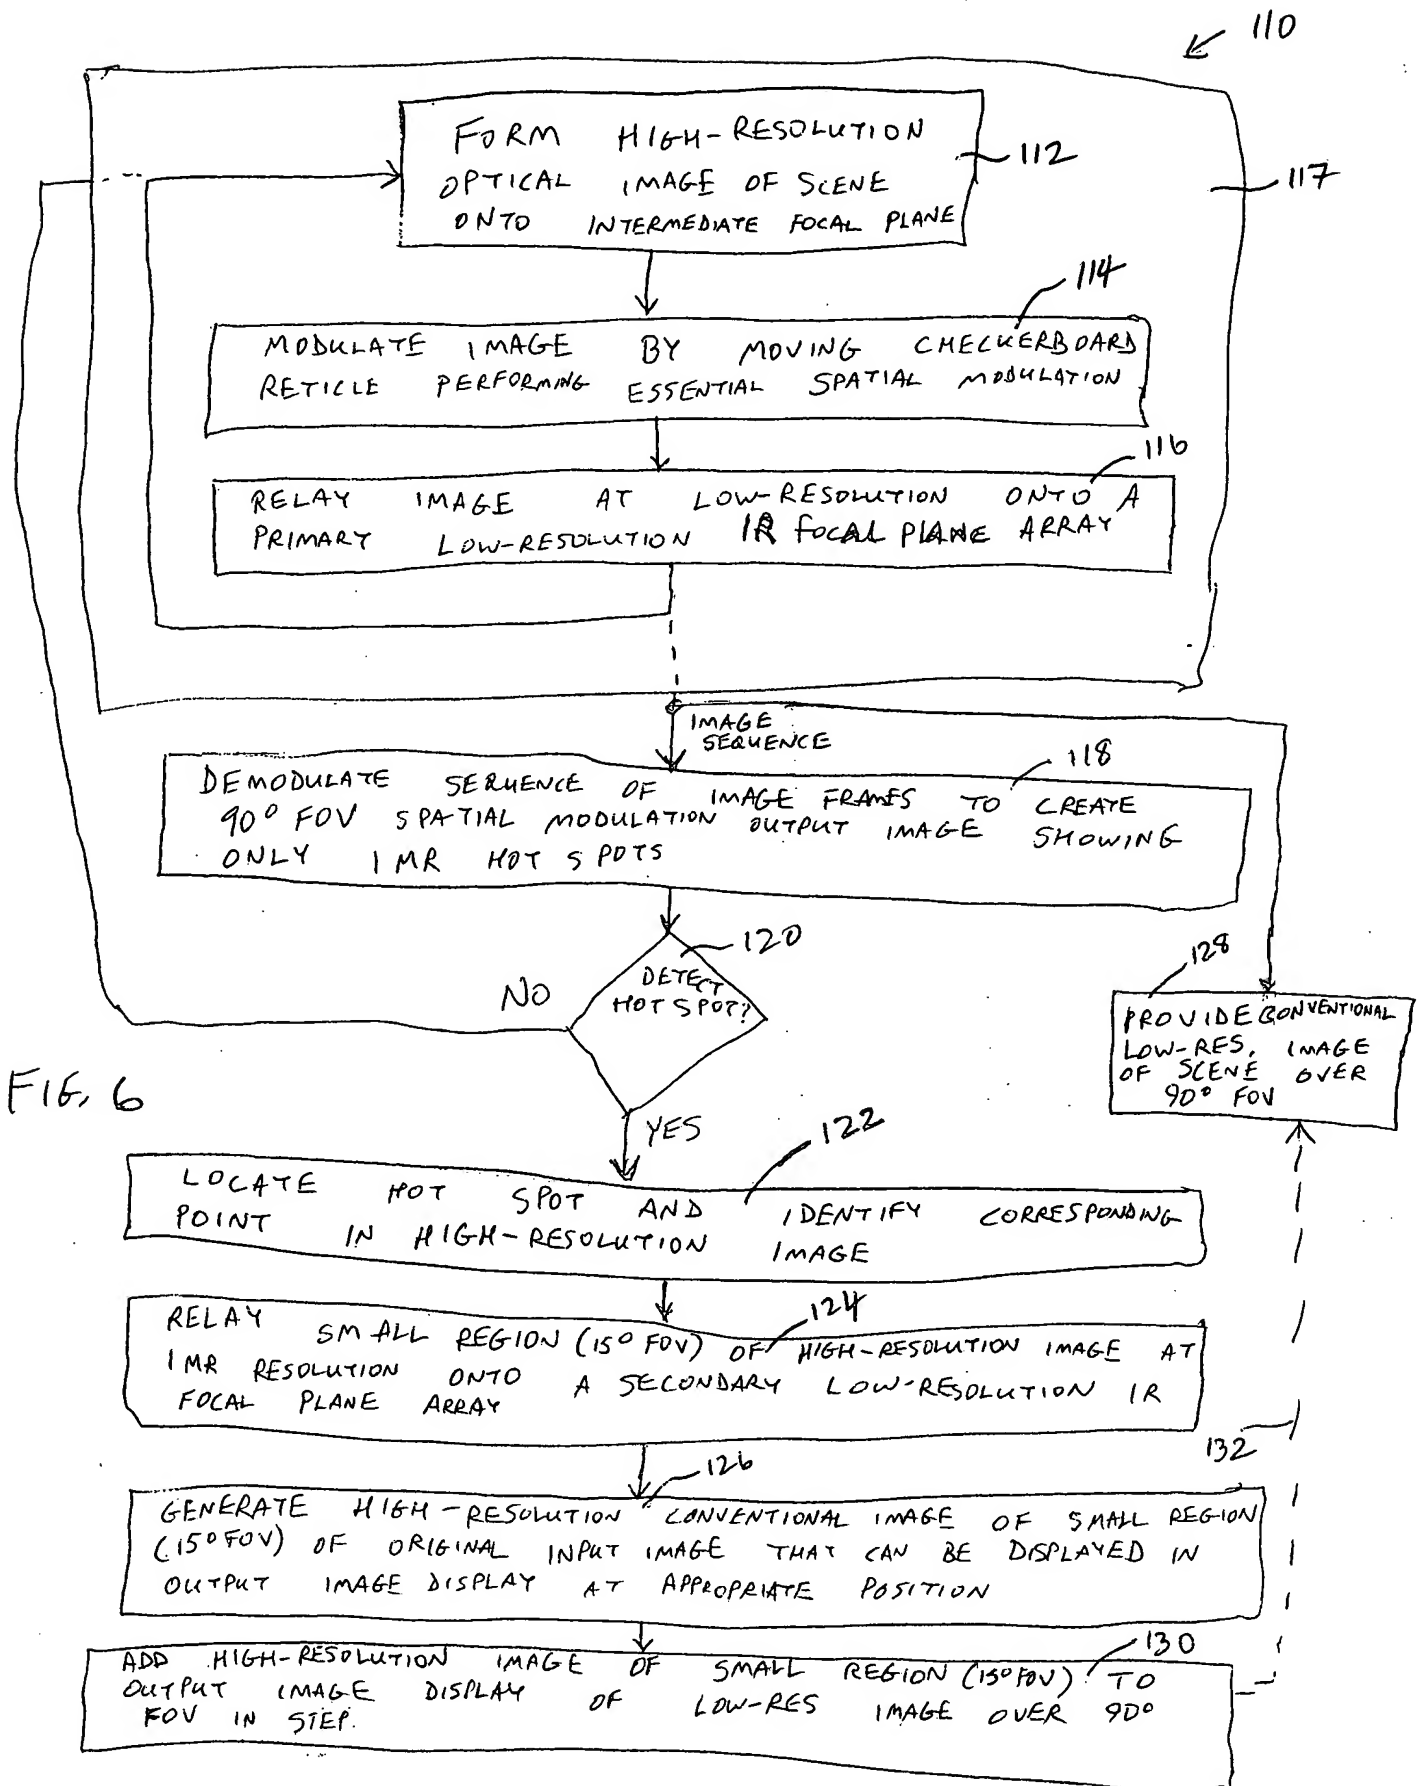 110
FORM HIGH-RESOLUTION
OPTICAL IMAGE OF SCENE
ONTO INTERMEDIATE FOCAL PLANE
112
117
114
MODULATE IMAGE BY MOVING CHECKERBOARD
RETICLE PERFORMING ESSENTIAL SPATIAL MODULATION
116
RELAY IMAGE AT LOW-RESOLUTION ONTO A
PRIMARY LOW-RESOLUTION IR FOCAL PLANE ARRAY
IMAGE
SEQUENCE
118
DEMODULATE SEQUENCE OF IMAGE FRAMES TO CREATE
90° FOV SPATIAL MODULATION OUTPUT IMAGE SHOWING
ONLY 1 MR HOT SPOTS
120
DETECT
HOT SPOT?
NO
128
PROVIDE CONVENTIONAL
LOW-RES. IMAGE
OF SCENE OVER
90° FOV
FIG. 6
YES
122
LOCATE HOT SPOT AND IDENTIFY CORRESPONDING
POINT IN HIGH-RESOLUTION IMAGE
124
RELAY SMALL REGION (15° FOV) OF HIGH-RESOLUTION IMAGE AT
1 MR RESOLUTION ONTO A SECONDARY LOW-RESOLUTION IR
FOCAL PLANE ARRAY
132
126
GENERATE HIGH-RESOLUTION CONVENTIONAL IMAGE OF SMALL REGION
(15° FOV) OF ORIGINAL INPUT IMAGE THAT CAN BE DISPLAYED IN
OUTPUT IMAGE DISPLAY AT APPROPRIATE POSITION
130
ADD HIGH-RESOLUTION IMAGE OF SMALL REGION (15° FOV) TO
OUTPUT IMAGE DISPLAY OF LOW-RES IMAGE OVER 90°
FOV IN STEP.